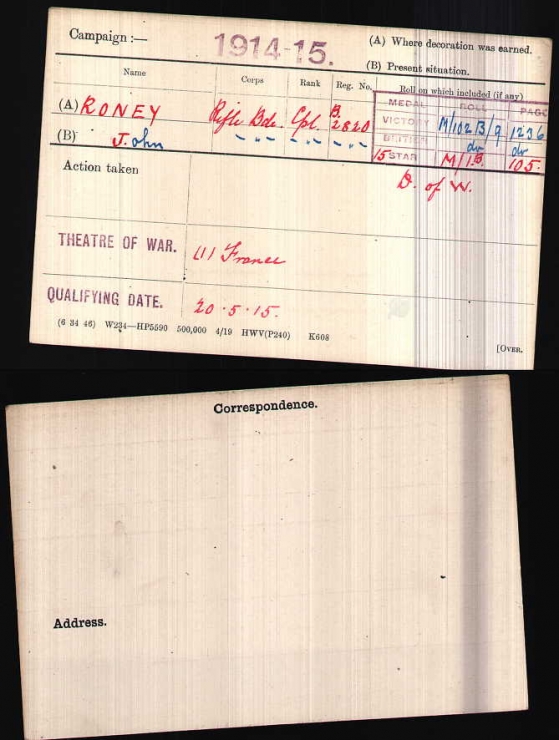 Campaign :—
1914-15.
(A) Where decoration was earned.
(B) Present situation.
Name Corps Rank Reg. No. Roll on which included (if any)
MEDAL ROLL PAGE
(A) RONEY Rifle Bde. Cpl. B. 2820 VICTORY M/102B/9 1236
(B) J. ohn " " " " " " BRITISH do do
15 STAR M/1.B. 105.
Action taken
D. of W.
THEATRE OF WAR. (1) France
QUALIFYING DATE. 20.5.15.
(6 34 46) W234—HP5590 500,000 4/19 HWV(P240) K608
[OVER.
Correspondence.
Address.